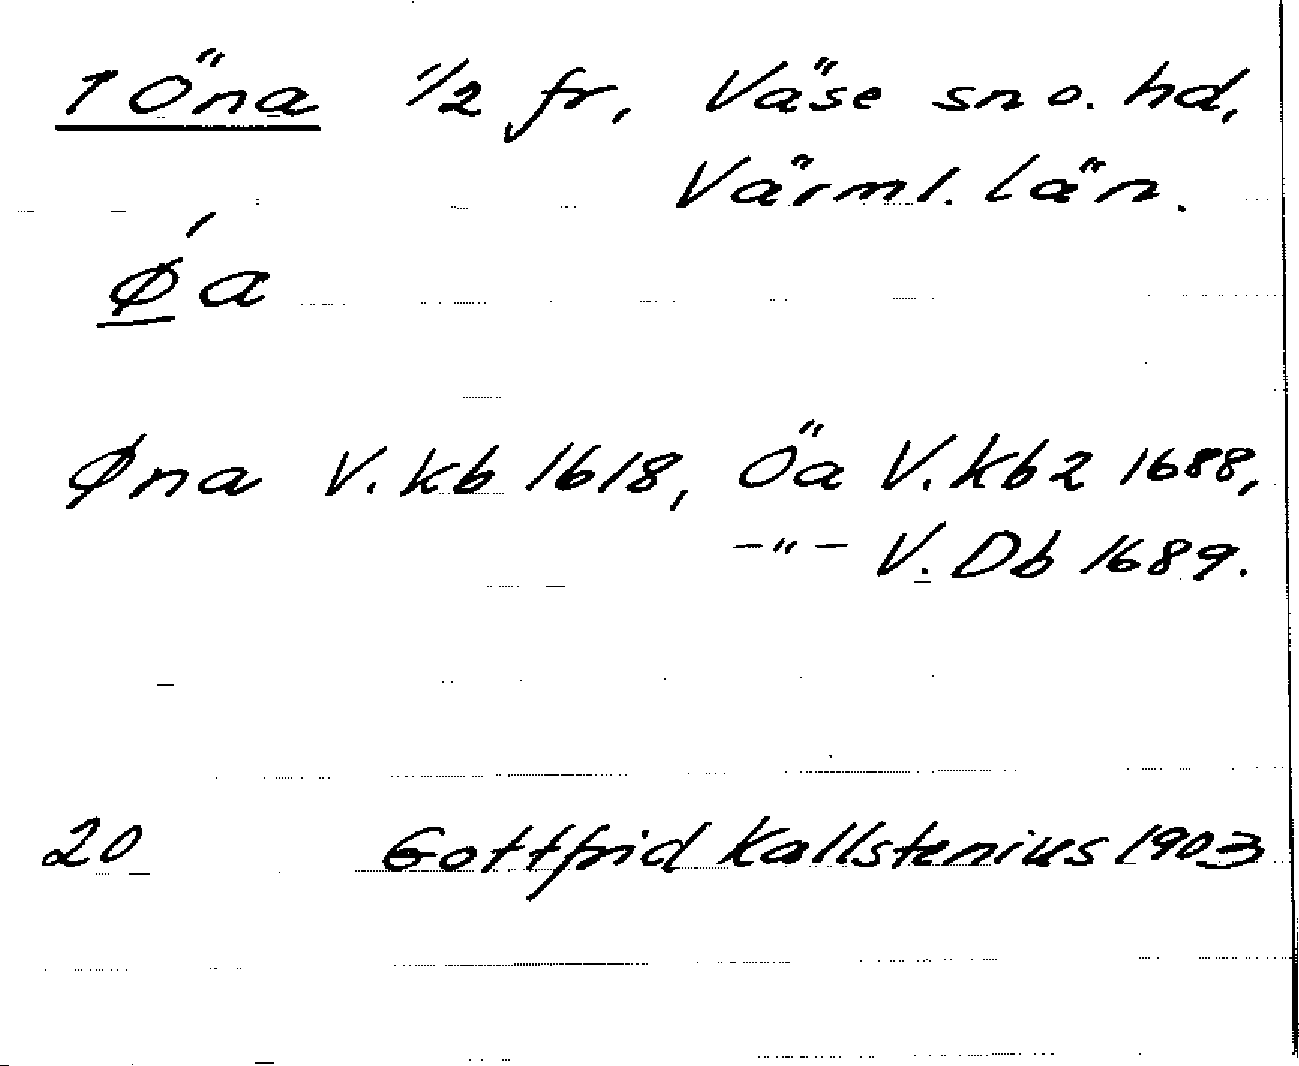 1 Öna 1/2 fr, Väse sn o. hd,
Värml. län.
Ǿa
Øna V. kb 1618, Öa V. kb 2 1688,
–"– V. Db 1689.
20 Gottfrid Kallstenius 1903